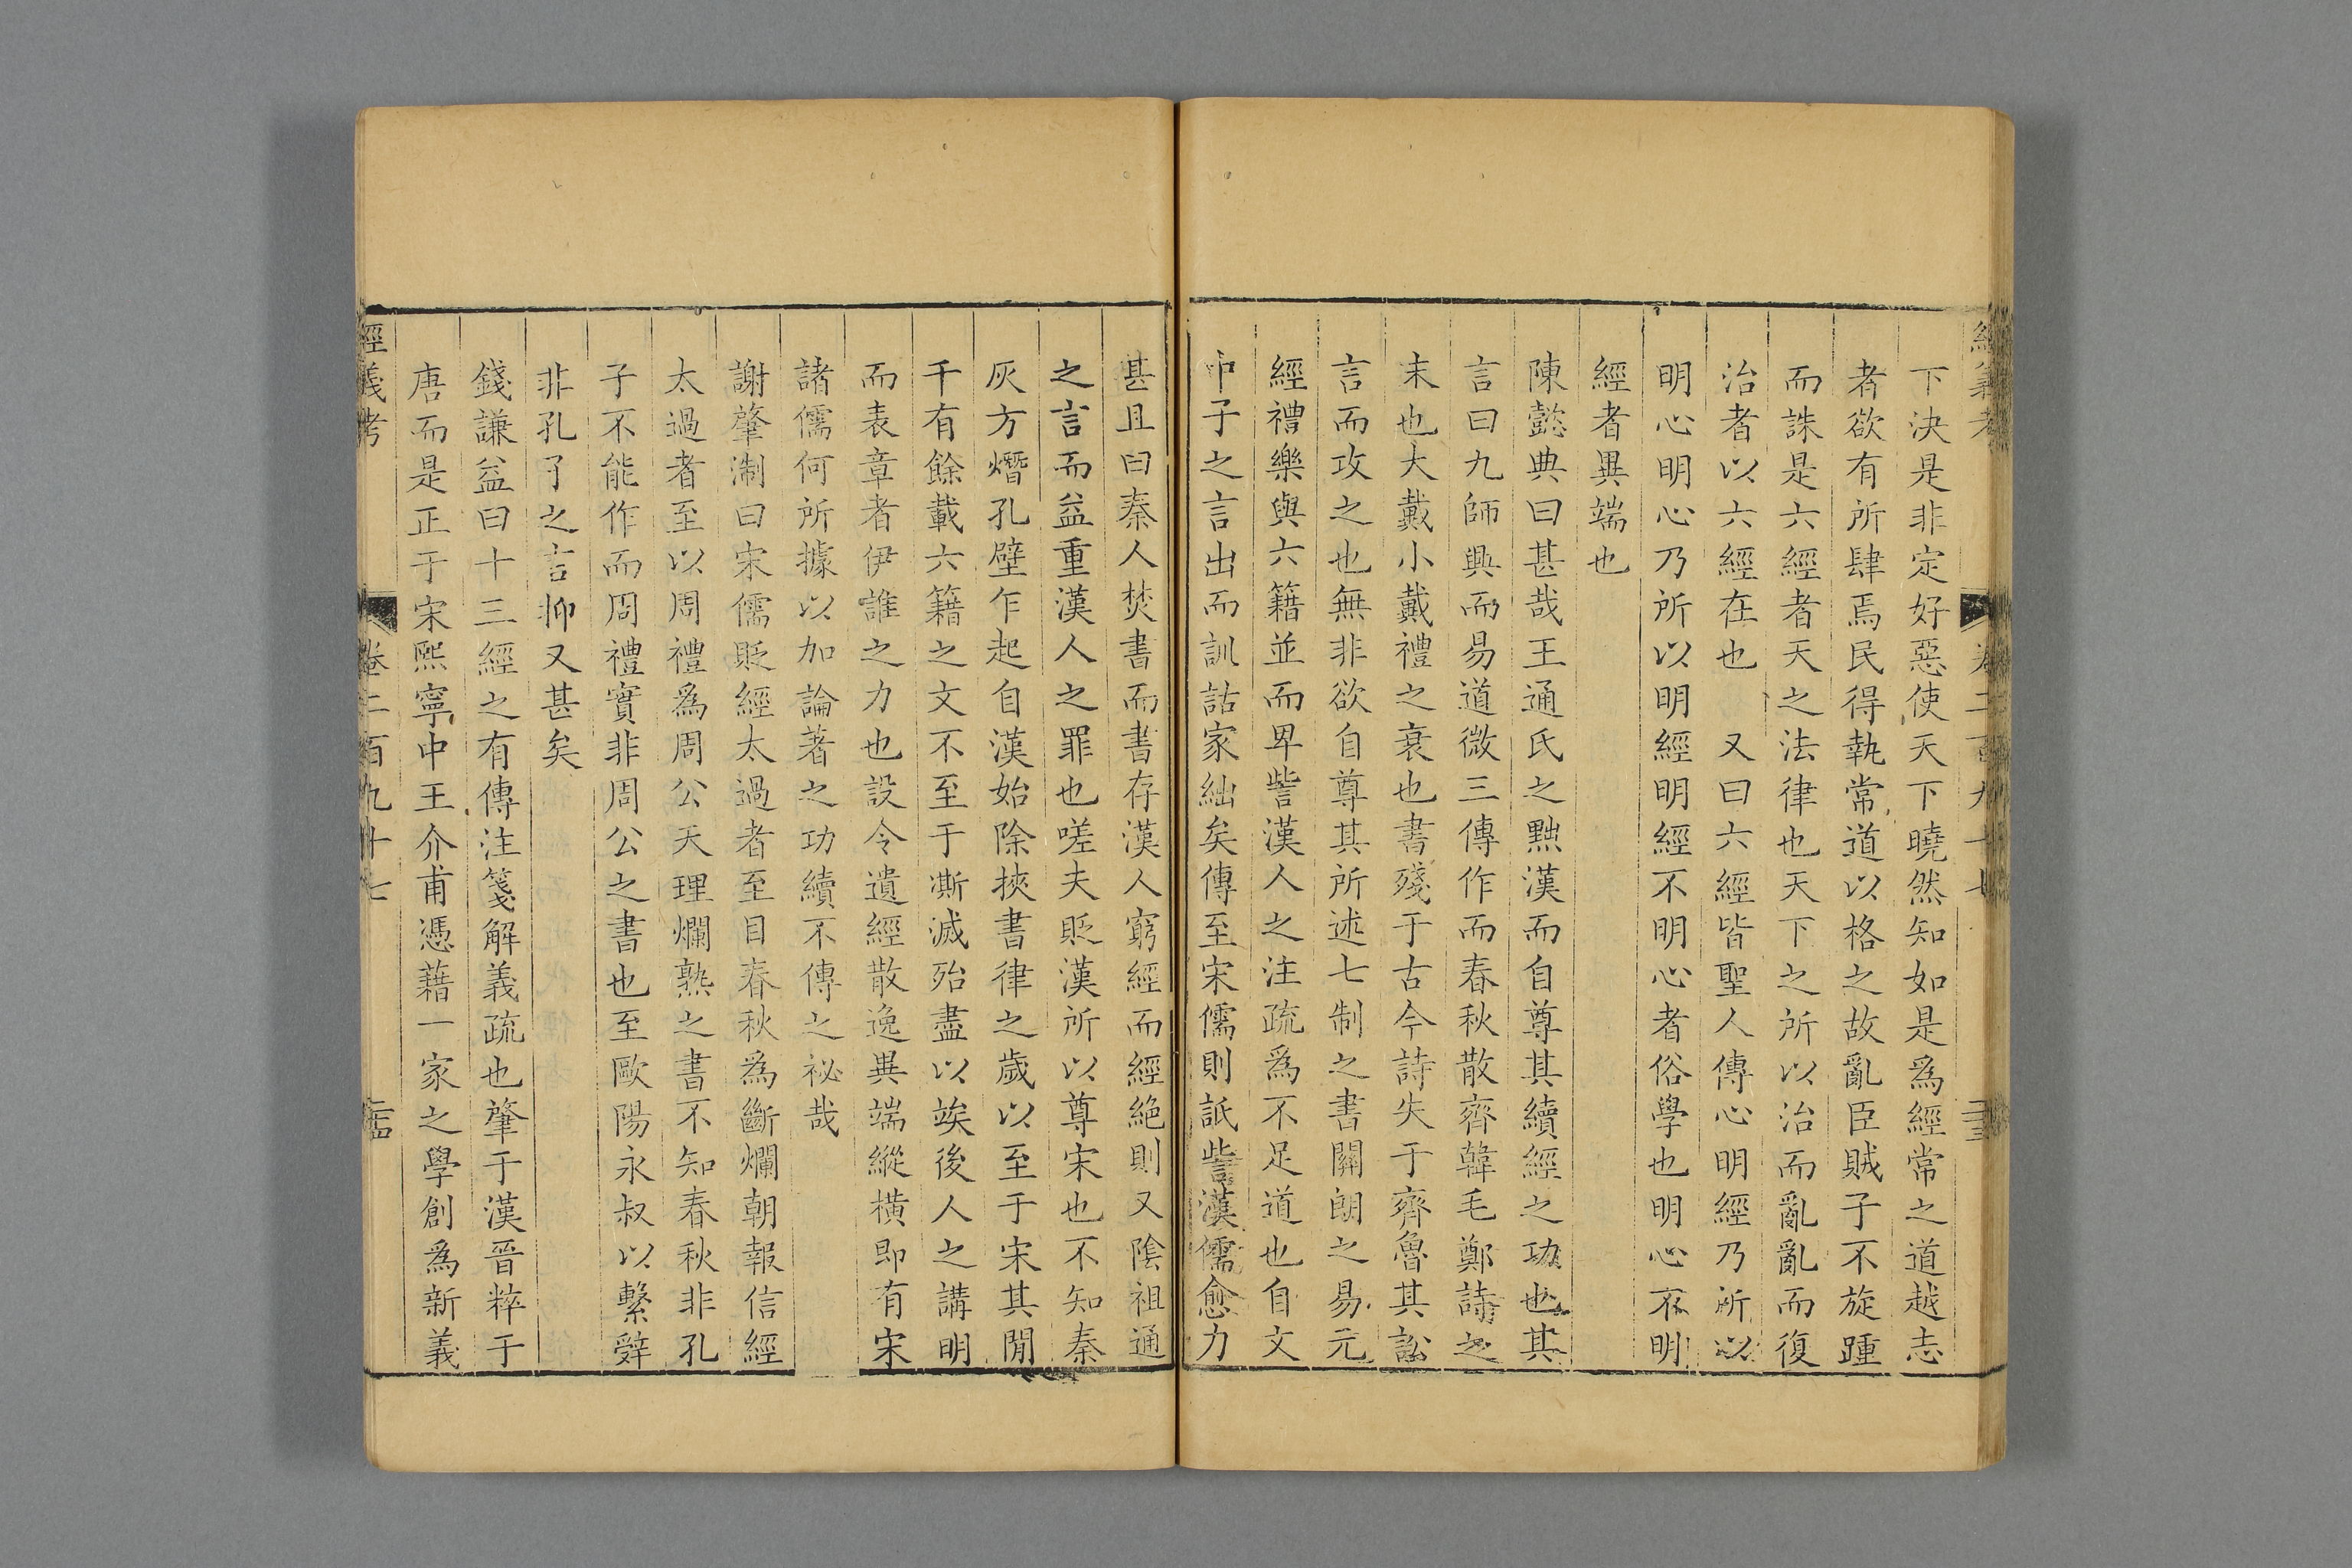 下決是非定好惡使天下曉然知如是爲經常之道越志
者欲有所肆焉民得執常道以格之故亂臣賊子不旋踵
而誅是六經者天之法律也天下之所以治而亂亂而復
治者以六經在也　又曰六經皆聖人傳心明經乃所以
明心明心乃所以明經明經不明心者俗學也明心不明
經者異端也
陳懿典曰甚哉王通氏之黜漢而自尊其續經之功也其
言曰九師興而易道微三傳作而春秋散齊韓毛鄭詩之
末也大戴小戴禮之衰也書殘于古今詩失于齊魯其訟
言而攻之也無非欲自尊其所述七制之書關朗之易元
經禮樂與六籍並而卑訾漢人之注疏爲不足道也自文
中子之言出而訓詁家絀矣傳至宋儒則詆訾漢儒愈力
甚且曰秦人焚書而書存漢人窮經而經絕則又陰祖通
之言而益重漢人之罪也嗟夫貶漢所以尊宋也不知秦
灰方熸孔壁乍起自漢始除挾書律之歲以至于宋其閒
千有餘載六籍之文不至于澌滅殆盡以竢後人之講明
而表章者伊誰之力也設令遺經散逸異端縱橫即有宋
諸儒何所據以加論著之功續不傳之祕哉
謝肇淛曰宋儒貶經太過者至目春秋爲斷爛朝報信經
太過者至以周禮爲周公天理爛熟之書不知春秋非孔
子不能作而周禮實非周公之書也至歐陽永叔以繫辭
非孔子之言抑又甚矣
錢謙益曰十三經之有傳注箋解義疏也肇于漢晉粹于
唐而是正于宋熙寧中王介甫憑藉一家之學創爲新義
經義考　卷二百九十七